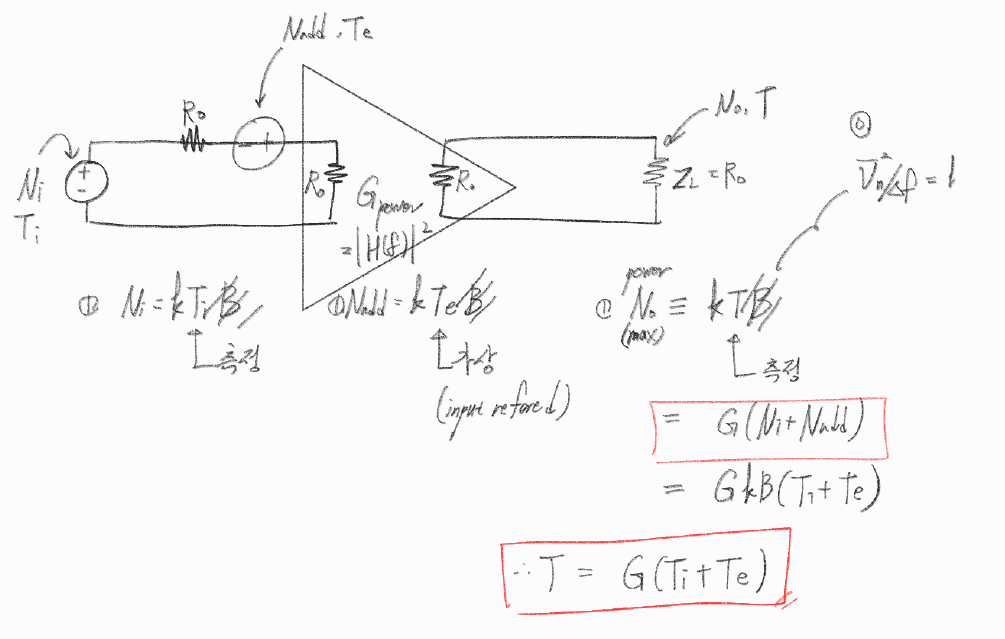 Nadd, Te
Ro
No, T
⓪
Ni
Ti
Ro
Gpower
= |H(f)|²
Ro
ZL = Ro
V̄n²/Δf = 1
① Ni = kTiB
측정
① Nadd = kTeB
가상
(input refered)
power
① No ≡ kTB
(max)
측정
= G(Ni + Nadd)
= GkB(Ti + Te)
∴ T = G(Ti + Te)